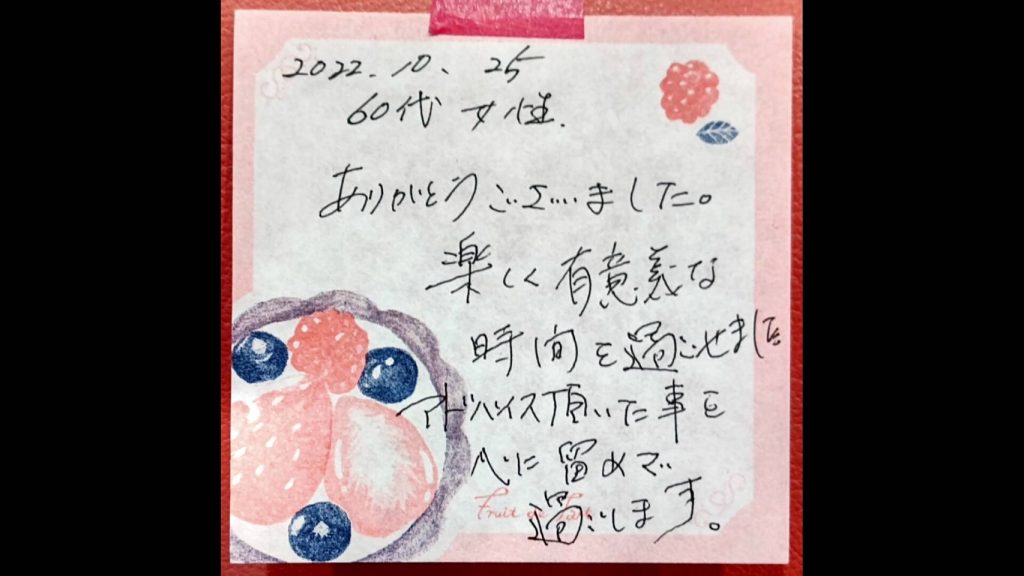 2022.10.25
60代 女性.
ありがとうございました。
楽しく有意義な
時間を過ごせました
アドバイス頂いた事を
心に留めて
過ごします。